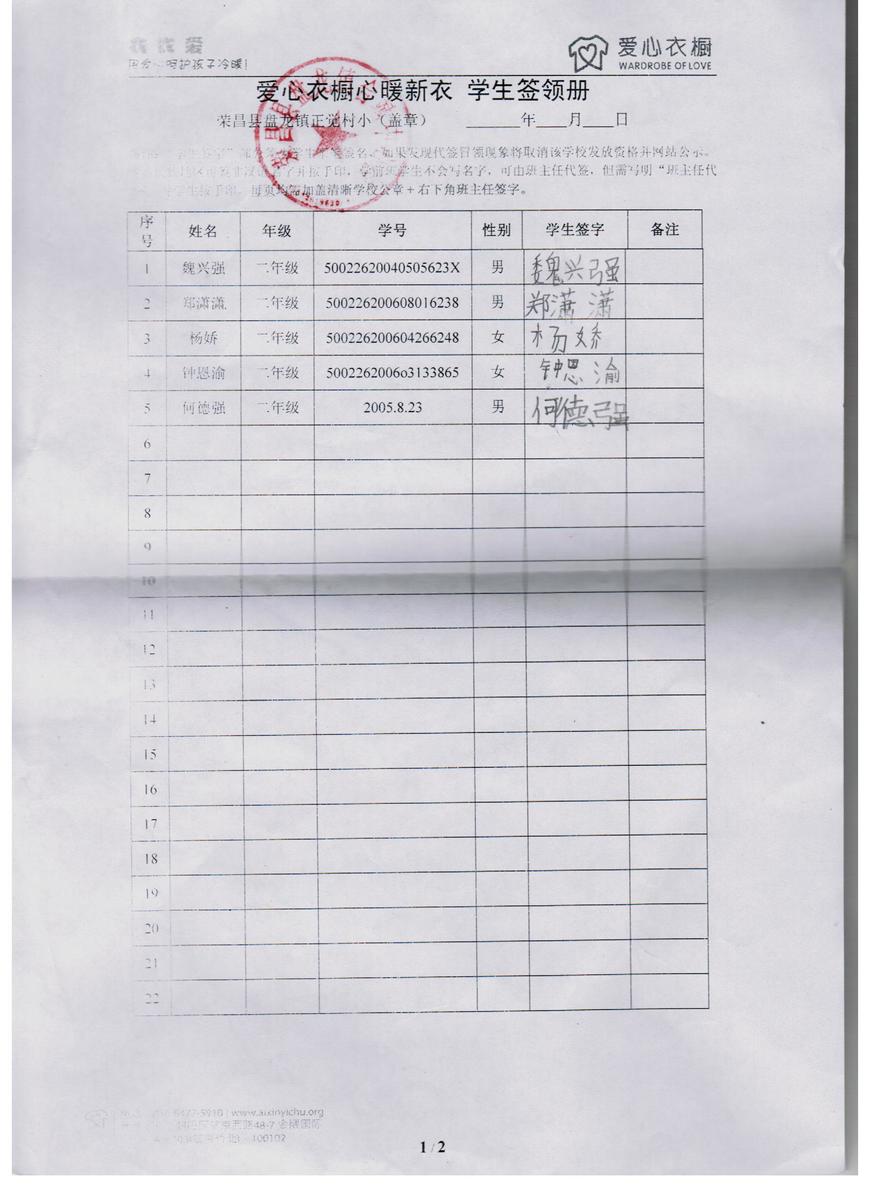 衣衣爱
用爱心呵护孩子冷暖!
爱心衣橱
WARDROBE OF LOVE
爱心衣橱心暖新衣 学生签领册
荣昌县盘龙镇正觉村小（盖章） ______年____月____日
如果发现代签冒领现象将取消该学校发放资格并网站公示。
学前班学生不会写名字，可由班主任代签，但需写明“班主任代
每页均需加盖清晰学校公章+右下角班主任签字。
序号 姓名 年级 学号 性别 学生签字 备注
1 魏兴强 二年级 50022620040505623X 男 魏兴强
2 郑潇潇 二年级 500226200608016238 男 郑潇潇
3 杨娇 二年级 500226200604266248 女 杨娇
4 钟恩渝 二年级 5002262006o3133865 女 钟恩渝
5 何德强 二年级 2005.8.23 男 何德强
6
7
8
9
10
11
12
13
14
15
16
17
18
19
20
21
22
6477-5910 | www.aixinyichu.org
48-7 金楼国际
100102
1 / 2